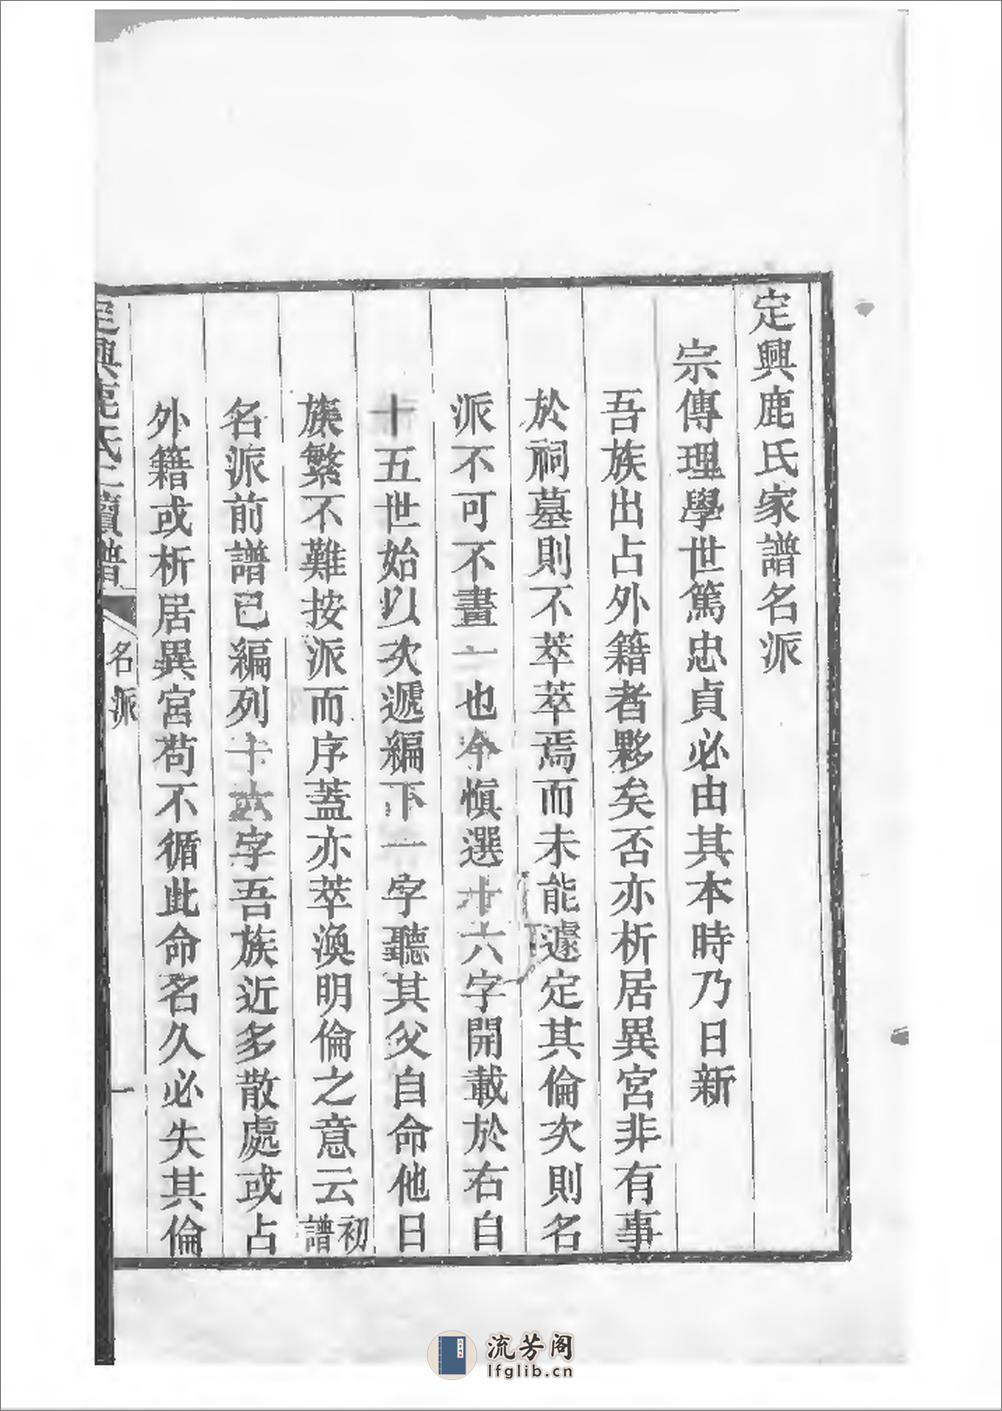 定興鹿氏家譜名派
宗傳理學世篤忠貞必由其本時乃日新
吾族出占外籍者夥矣否亦析居異宮非有事
於祠墓則不萃萃焉而未能遽定其倫次則名
派不可不畫一也今愼選十六字開載於右自
十五世始以次遞編下一字聽其父自命他日
族繁不難按派而序蓋亦萃渙明倫之意云初譜
名派前譜已編列十六字吾族近多散處或占
外籍或析居異宮苟不循此命名久必失其倫
定興鹿氏二續譜
名派
一
流芳阁
lfglib.cn